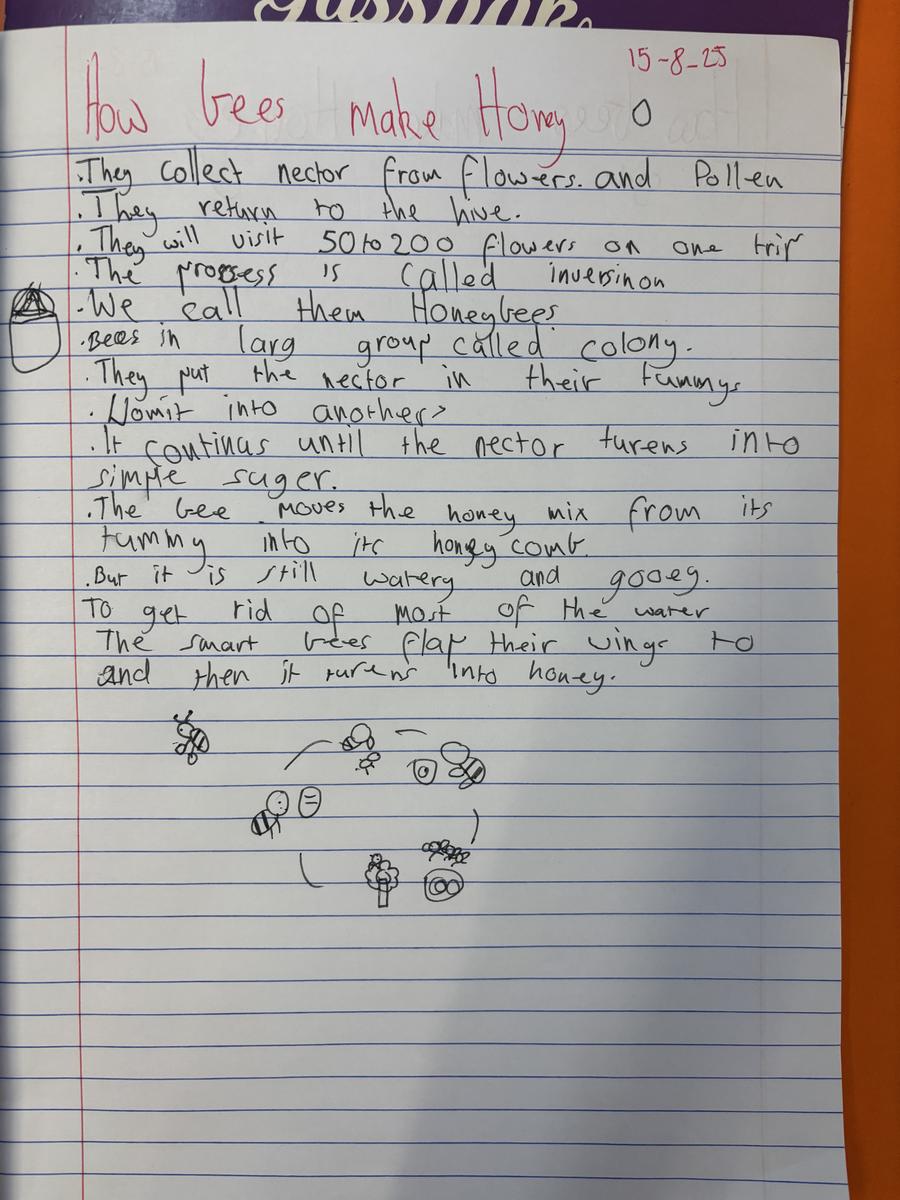 15-8-25
How bees make Honey
.They collect nector from flowers. and Pollen
. They return to the hive.
. They will visit 50 to 200 flowers on one trip
. The prossess is called inversinon
. We call them Honeybees
. Bees in larg group called colony.
. They put the nector in their tummys
. Vomit into another>
. It continas until the nector turens into
simple suger.
. The bee moves the honey mix from its
tummy into its honey comb.
. But it is still watery and gooey.
To get rid of most of the water
The smart bees flap their wings to
and then it turens into honey.